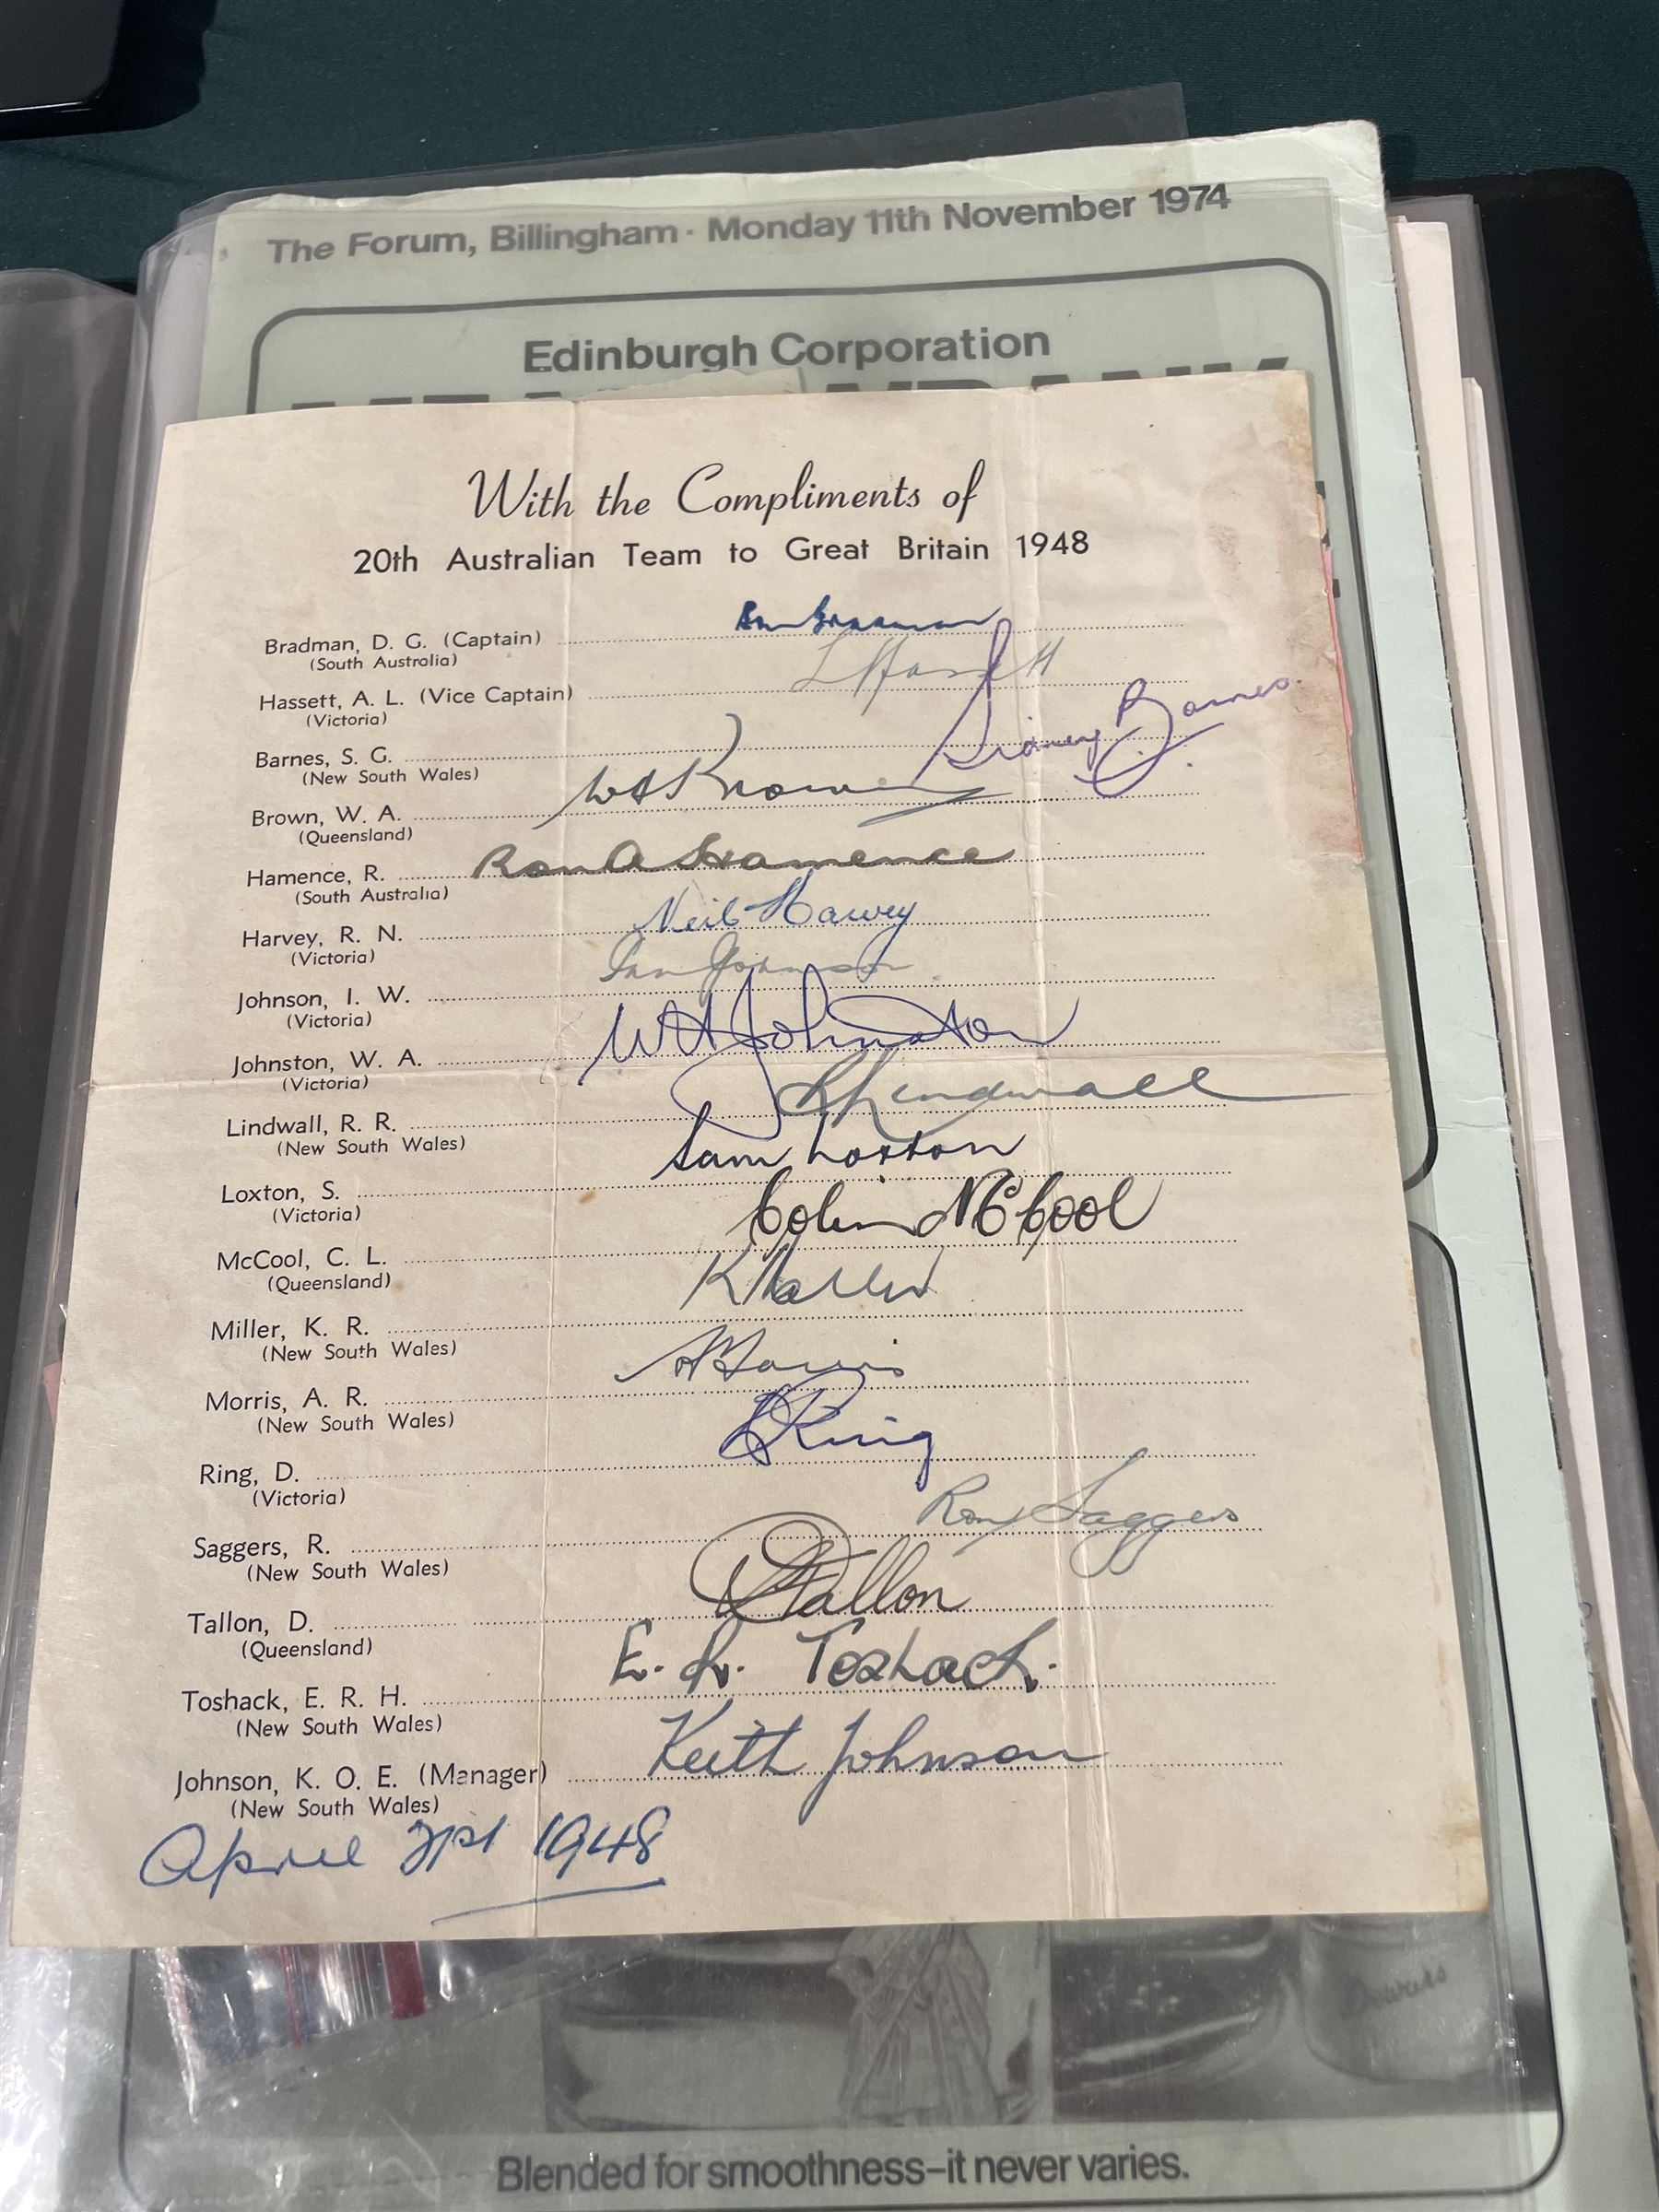 The Forum, Billingham · Monday 11th November 1974
Edinburgh Corporation
With the Compliments of
20th Australian Team to Great Britain 1948
Bradman, D. G. (Captain) Don Bradman
(South Australia)
Hassett, A. L. (Vice Captain) L Hassett
(Victoria)
Barnes, S. G. Sidney Barnes.
(New South Wales)
Brown, W. A. WABrown
(Queensland)
Hamence, R. Ron A Hamence
(South Australia)
Harvey, R. N. Neil Harvey
(Victoria)
Johnson, I. W. Ian Johnson
(Victoria)
Johnston, W. A. WAJohnston
(Victoria)
Lindwall, R. R. RRLindwall
(New South Wales)
Loxton, S. Sam Loxton
(Victoria)
McCool, C. L. Colin McCool
(Queensland)
Miller, K. R. KMiller
(New South Wales)
Morris, A. R. AMorris
(New South Wales)
Ring, D. DRing
(Victoria)
Saggers, R. Ron Saggers
(New South Wales)
Tallon, D. DTallon
(Queensland)
Toshack, E. R. H. E. R. Toshack.
(New South Wales)
Johnson, K. O. E. (Manager) Keith Johnson
(New South Wales)
April 1948
Blended for smoothness–it never varies.